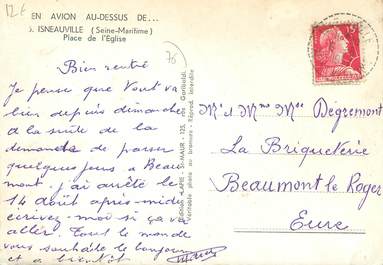 12 €
EN AVION AU-DESSUS DE...
ISNEAUVILLE (Seine-Maritime)
Place de l'Église
76
Bien rentré
Je pense que tout va
bien depuis dimanche
à la suite de la
demande de passer
quelques jours à Beau
mont. j'ai arrêté le
14 août après-midi
écrivez-moi si ça va
aller. Tout le monde
vous souhaite le bonjour
et à bientôt
Édition "LAPIE" St-MAUR - 125, rue Garibaldi.
Véritable photo au bromure - Reprod. interdite
15F
Mr & Mme Mce Degremont
La Briqueterie
Beaumont le Roger
Eure